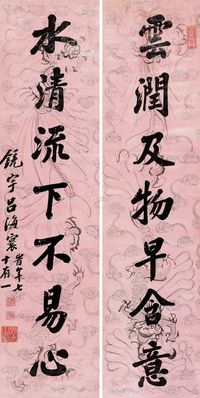 雲潤及物早含意
水清流下不易心
鏡宇呂海寰
昔年七
十有一